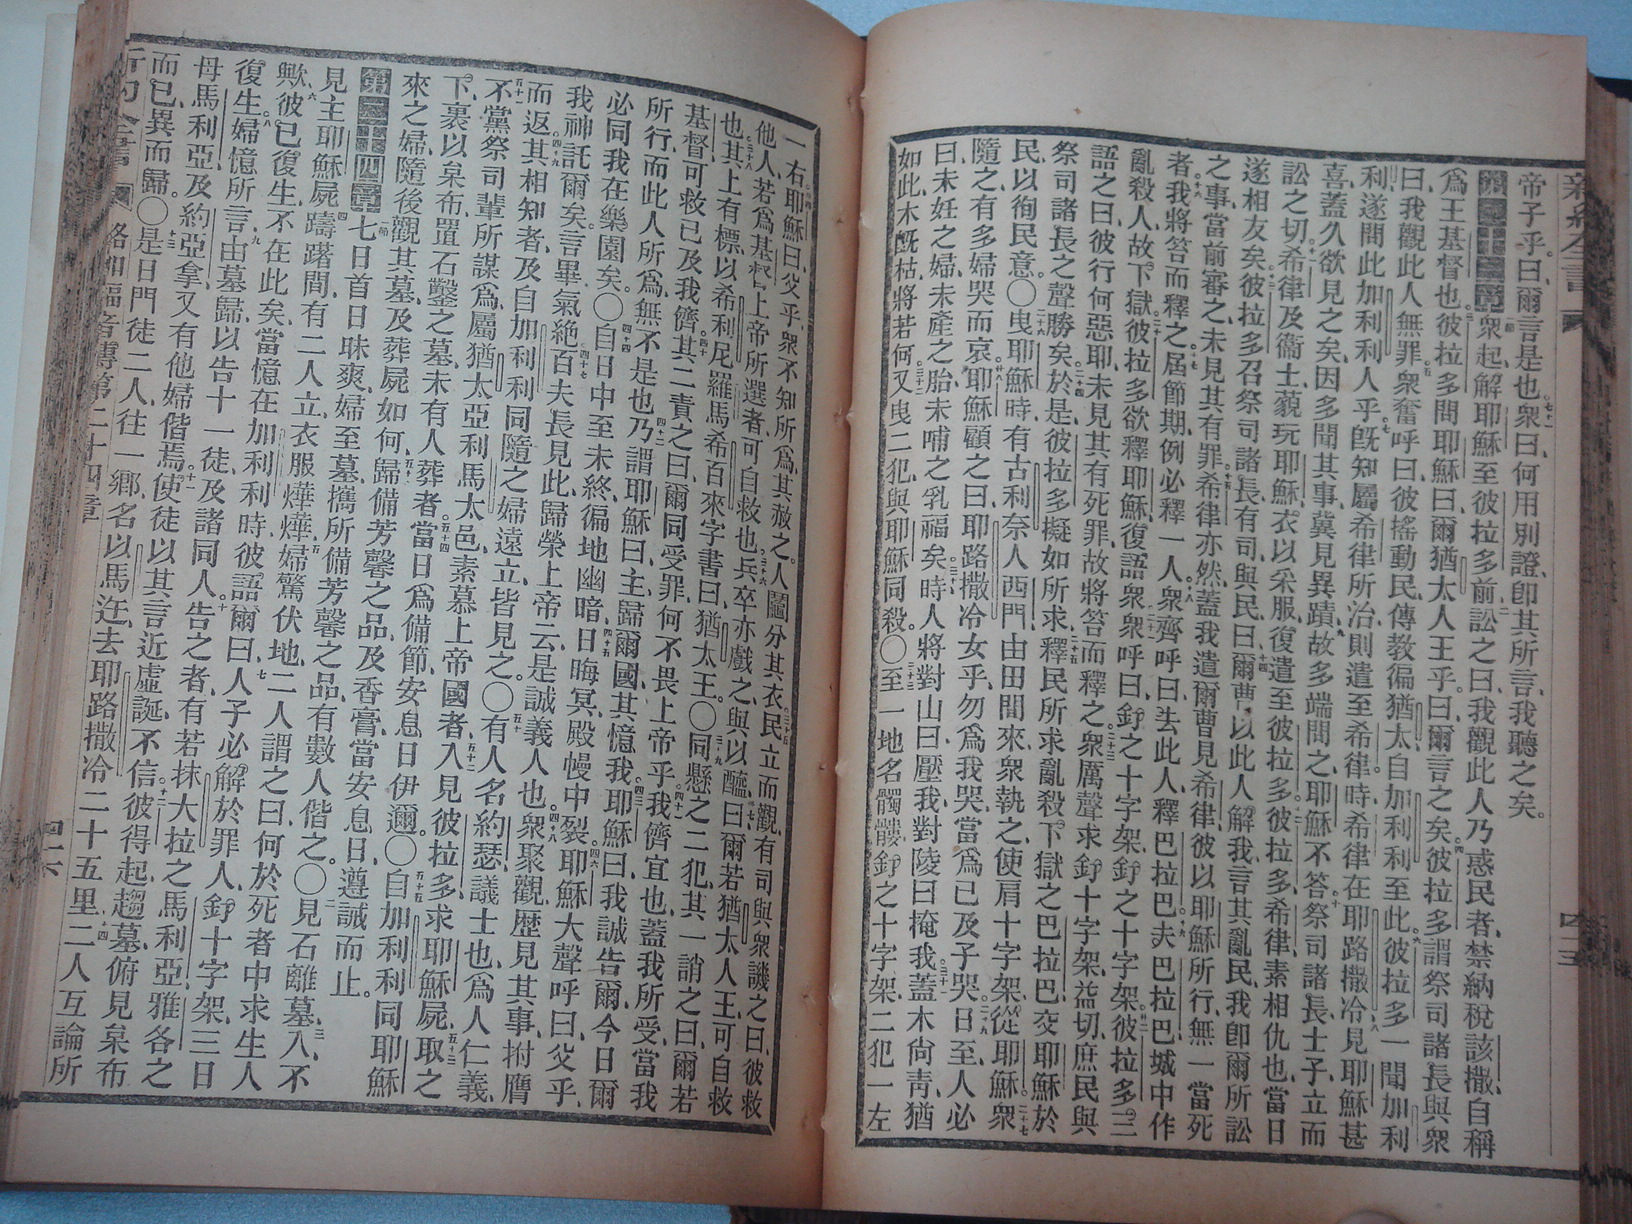 新約全書
帝子乎曰爾言是也衆曰何用別證卽其所言我聽之矣
第二十三章 衆起解耶穌至彼拉多前訟之曰我觀此人乃惑民者禁納稅該撒自稱
爲王基督也彼拉多問耶穌曰爾猶太人王乎曰爾言之矣彼拉多謂祭司諸長與衆
曰我觀此人無罪衆奮呼曰彼搖動民傳教徧猶太自加利利至此彼拉多一聞加利
利遂問此加利利人乎旣知屬希律所治則遣至希律時希律在耶路撒冷見耶穌甚
喜蓋久欲見之矣因多聞其事冀見異蹟故多端問之耶穌不答祭司諸長士子立而
訟之切希律及衞士藐玩耶穌衣以采服復遣至彼拉多彼拉多希律素相仇也當日
遂相友矣彼拉多召祭司諸長有司與民曰爾曹以此人解我言其亂民我卽爾所訟
之事當前審之未見其有罪希律亦然蓋我遣爾曹見希律彼以耶穌所行無一當死
者我將笞而釋之屆節期例必釋一人衆齊呼曰去此人釋巴拉巴夫巴拉巴城中作
亂殺人故下獄彼拉多欲釋耶穌復語衆衆呼曰釘之十字架釘之十字架彼拉多三
語之曰彼行何惡耶未見其有死罪故將笞而釋之衆厲聲求釘十字架益切庶民與
祭司諸長之聲勝矣於是彼拉多擬如所求釋民所求亂殺下獄之巴拉巴交耶穌於
民以徇民意〇曳耶穌時有古利奈人西門由田間來衆執之使肩十字架從耶穌衆
隨之有多婦哭而哀耶穌顧之曰耶路撒冷女乎勿爲我哭當爲己及子哭日至人必
曰未妊之婦未產之胎未哺之乳福矣時人將對山曰壓我對陵曰掩我蓋木尙靑猶
如此木旣枯將若何又曳二犯與耶穌同殺〇至一地名髑髏釘之十字架二犯一左
一右耶穌曰父乎衆不知所爲其赦之人鬮分其衣民立而觀有司與衆譏之曰彼救
他人若爲基督上帝所選者可自救也兵卒亦戲之與以醯曰爾若猶太人王可自救
也其上有標以希利尼羅馬希百來字書曰猶太王〇同懸之二犯其一誚之曰爾若
基督可救己及我儕其二責之曰爾同受罪何不畏上帝乎我儕宜也蓋我所受當我
所行而此人所爲無不是也乃謂耶穌曰主歸爾國其憶我耶穌曰我誠告爾今日爾
必同我在樂園矣〇自日中至未終徧地幽暗日晦冥殿幔中裂耶穌大聲呼曰父乎
我神託爾矣言畢氣絶百夫長見此歸榮上帝云是誠義人也衆聚觀歷見其事拊膺
而返其相知者及自加利利同隨之婦遠立皆見之〇有人名約瑟議士也爲人仁義
不黨祭司輩所謀爲屬猶太亞利馬太邑素慕上帝國者入見彼拉多求耶穌屍取之
下裹以枲布置石鑿之墓未有人葬者當日爲備節安息日伊邇〇自加利利同耶穌
來之婦隨後觀其墓及葬屍如何歸備芳馨之品及香膏當安息日遵誡而止
第二十四章 七日首日昧爽婦至墓攜所備芳馨之品有數人偕之〇見石離墓入不
見主耶穌屍躊躇間有二人立衣服燁燁婦驚伏地二人謂之曰何於死者中求生人
歟彼已復生不在此矣當憶在加利利時彼語爾曰人子必解於罪人釘十字架三日
復生婦憶所言由墓歸以告十一徒及諸同人告之者有若抹大拉之馬利亞雅各之
母馬利亞及約亞拿又有他婦偕焉使徒以其言近虛誕不信彼得起趨墓俯見枲布
而已異而歸〇是日門徒二人往一鄉名以馬迕去耶路撒冷二十五里二人互論所
路加福音傳第二十四章